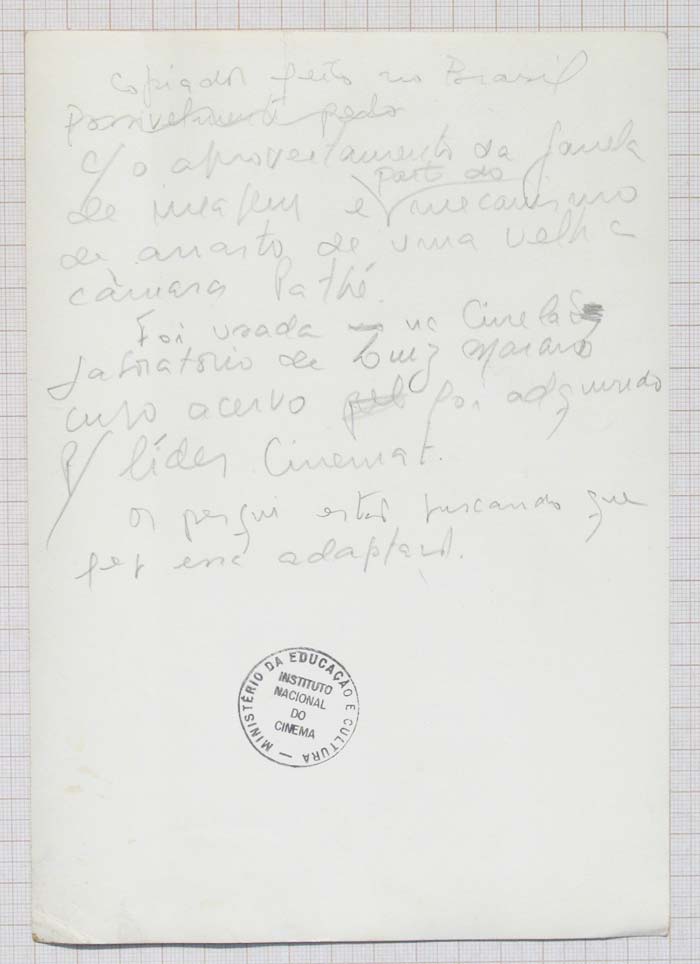 Copiador feito no Brasil
Possivelmente pedo
c/ o aproveitamento da janela
parte do
de imagem e mecanismo
de arrasto de uma velha
câmara Pathé.
Foi usada na Cinelab
Laboratório de Luiz
cujo acervo foi adquirido
p/ Líder Cinemat.
Os pesqui estão buscando que
fez essa adaptaçã.
MINISTÉRIO DA EDUCAÇÃO E CULTURA —
INSTITUTO
NACIONAL
DO
CINEMA